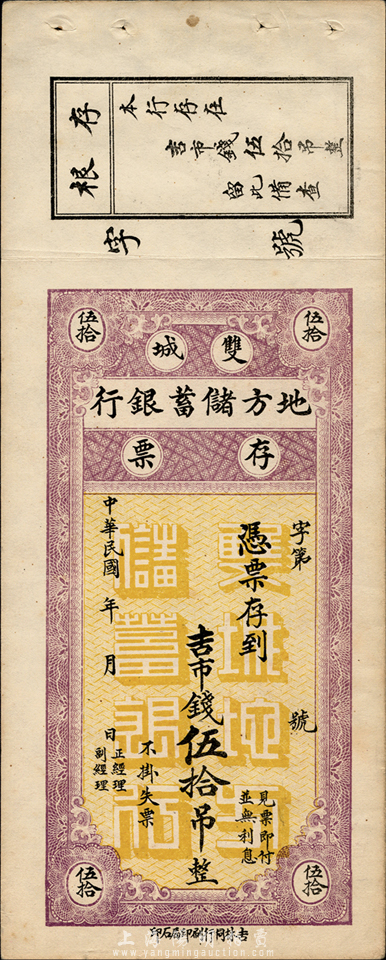 存根
本行存在
吉市錢伍拾吊整
留此備查
字 號
伍拾 伍拾
雙城
地方儲蓄銀行
存票
字第 號
憑票存到
吉市錢伍拾吊整
見票即付
並無利息
不掛失票
中華民國 年 月 日
正經理
副經理
雙城地方
儲蓄銀行
伍拾 伍拾
www.yangmingauction.com